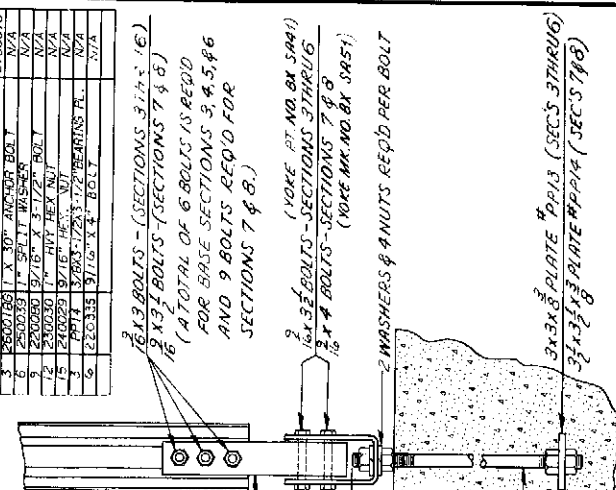 3 2600186 1 X 30" ANCHOR BOLT N/A
6 250039 1" SPLIT WASHER N/A
9 220080 9/16" X 3-1/2" BOLT N/A
12 230030 1" HVY HEX NUT N/A
15 240029 9/16" HEX NUT N/A
3 PP14 3/8X3-1/2X3-1/2"BEARING PL. N/A
6 220335 9/16" X 4" BOLT N/A
9/16 X 3 BOLTS - (SECTIONS 3 THRU 6)
9/16 X 3 1/2 BOLTS - (SECTIONS 7 & 8)
(A TOTAL OF 6 BOLTS IS REQ'D
FOR BASE SECTIONS 3,4,5,&6
AND 9 BOLTS REQ'D FOR
SECTIONS 7 & 8.)
(YOKE PT. NO. BX SA41)
9/16 X 3 1/2 BOLTS - SECTIONS 3 THRU 6
9/16 X 4 BOLTS - SECTIONS 7 & 8
(YOKE MK. NO. BX SA51)
2 WASHERS & 4 NUTS REQ'D PER BOLT
3 X 3 X 3/8 PLATE #PP13 (SEC'S 3 THRU 6)
3 1/2 X 3 1/2 X 3/8 PLATE #PP14 (SEC'S 7 & 8)